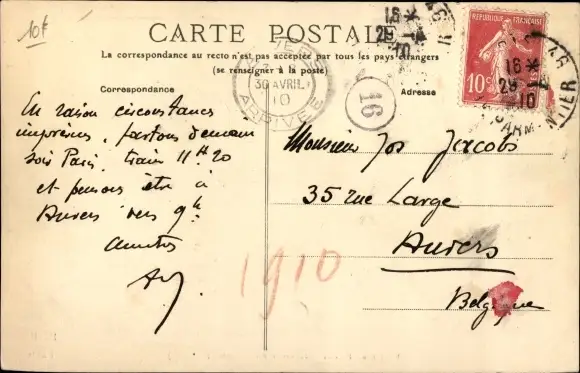 10f
CARTE POSTALE
La correspondance au recto n'est pas acceptée par tous les pays étrangers
(se renseigner à la poste)
Correspondance
Adresse
REPUBLIQUE FRANÇAISE
10c
16 *
29 - 4
10
16 *
29 - 4
10
30 AVRIL
10
ARRIVÉE
16
En raison circonstances
imprévues, partons demain
soir Paris, train 11h20
et pensons être à
Anvers vers 9h.
Amitiés
Monsieur Jos Jacobs
35 rue Large
Anvers
Belgique
1910